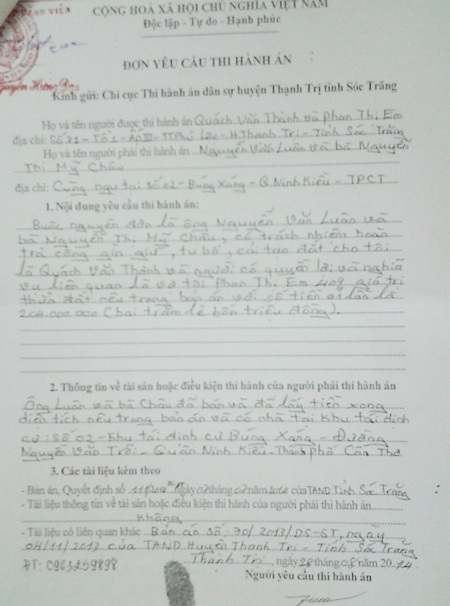 CỘNG HOÀ XÃ HỘI CHỦ NGHĨA VIỆT NAM
Độc lập - Tự do - Hạnh phúc
ĐƠN YÊU CẦU THI HÀNH ÁN
Kính gửi: Chi cục Thi hành án dân sự huyện Thạnh Trị tỉnh Sóc Trăng
Họ và tên người được thi hành án Quách Văn Thành và Phan Thị Em
địa chỉ: Số 31 - Tổ 1 - Ấp III - TT Phú Lộc - H Thạnh Trị - Tỉnh Sóc Trăng
Họ và tên người phải thi hành án Nguyễn Văn Luân và bà Nguyễn
Thị Mỹ Châu
địa chỉ: Cùng ngụ tại số 02 - Búng Xáng - Q. Ninh Kiều - TPCT
1. Nội dung yêu cầu thi hành án:
Buộc nguyên đơn là ông Nguyễn Văn Luân và
bà Nguyễn Thị Mỹ Châu, có trách nhiệm hoàn
trả công gìn giữ, tu bổ, cải tạo đất cho tôi
là Quách Văn Thành và người có quyền lợi và nghĩa
vụ liên quan là vợ tôi Phan Thị Em 40% giá trị
thửa đất nêu trong bản án với số tiền là
204.000.000 (hai trăm lẻ bốn triệu đồng).
2. Thông tin về tài sản hoặc điều kiện thi hành của người phải thi hành án
Ông Luân và bà Châu đã bán và đã lấy tiền xong
diện tích nêu trong bản án và có nhà tại khu tái định
cư: số 02 - Khu tái định cư Búng Xáng - Đường
Nguyễn Văn Trỗi - Quận Ninh Kiều - Thành phố Cần Thơ
3. Các tài liệu kèm theo
- Bản án, Quyết định số ngày 07 tháng 02 năm 2014 của TAND Tỉnh Sóc Trăng
- Tài liệu thông tin về tài sản hoặc điều kiện thi hành của người phải thi hành án
Không
- Tài liệu có liên quan khác Bản án số: 70/2013/DS-ST, ngày
04/11/2013 của TAND Huyện Thạnh Trị - Tỉnh Sóc Trăng
ĐT: 0963259898 Thạnh Trị, ngày 28 tháng 08 năm 2014
Người yêu cầu thi hành án